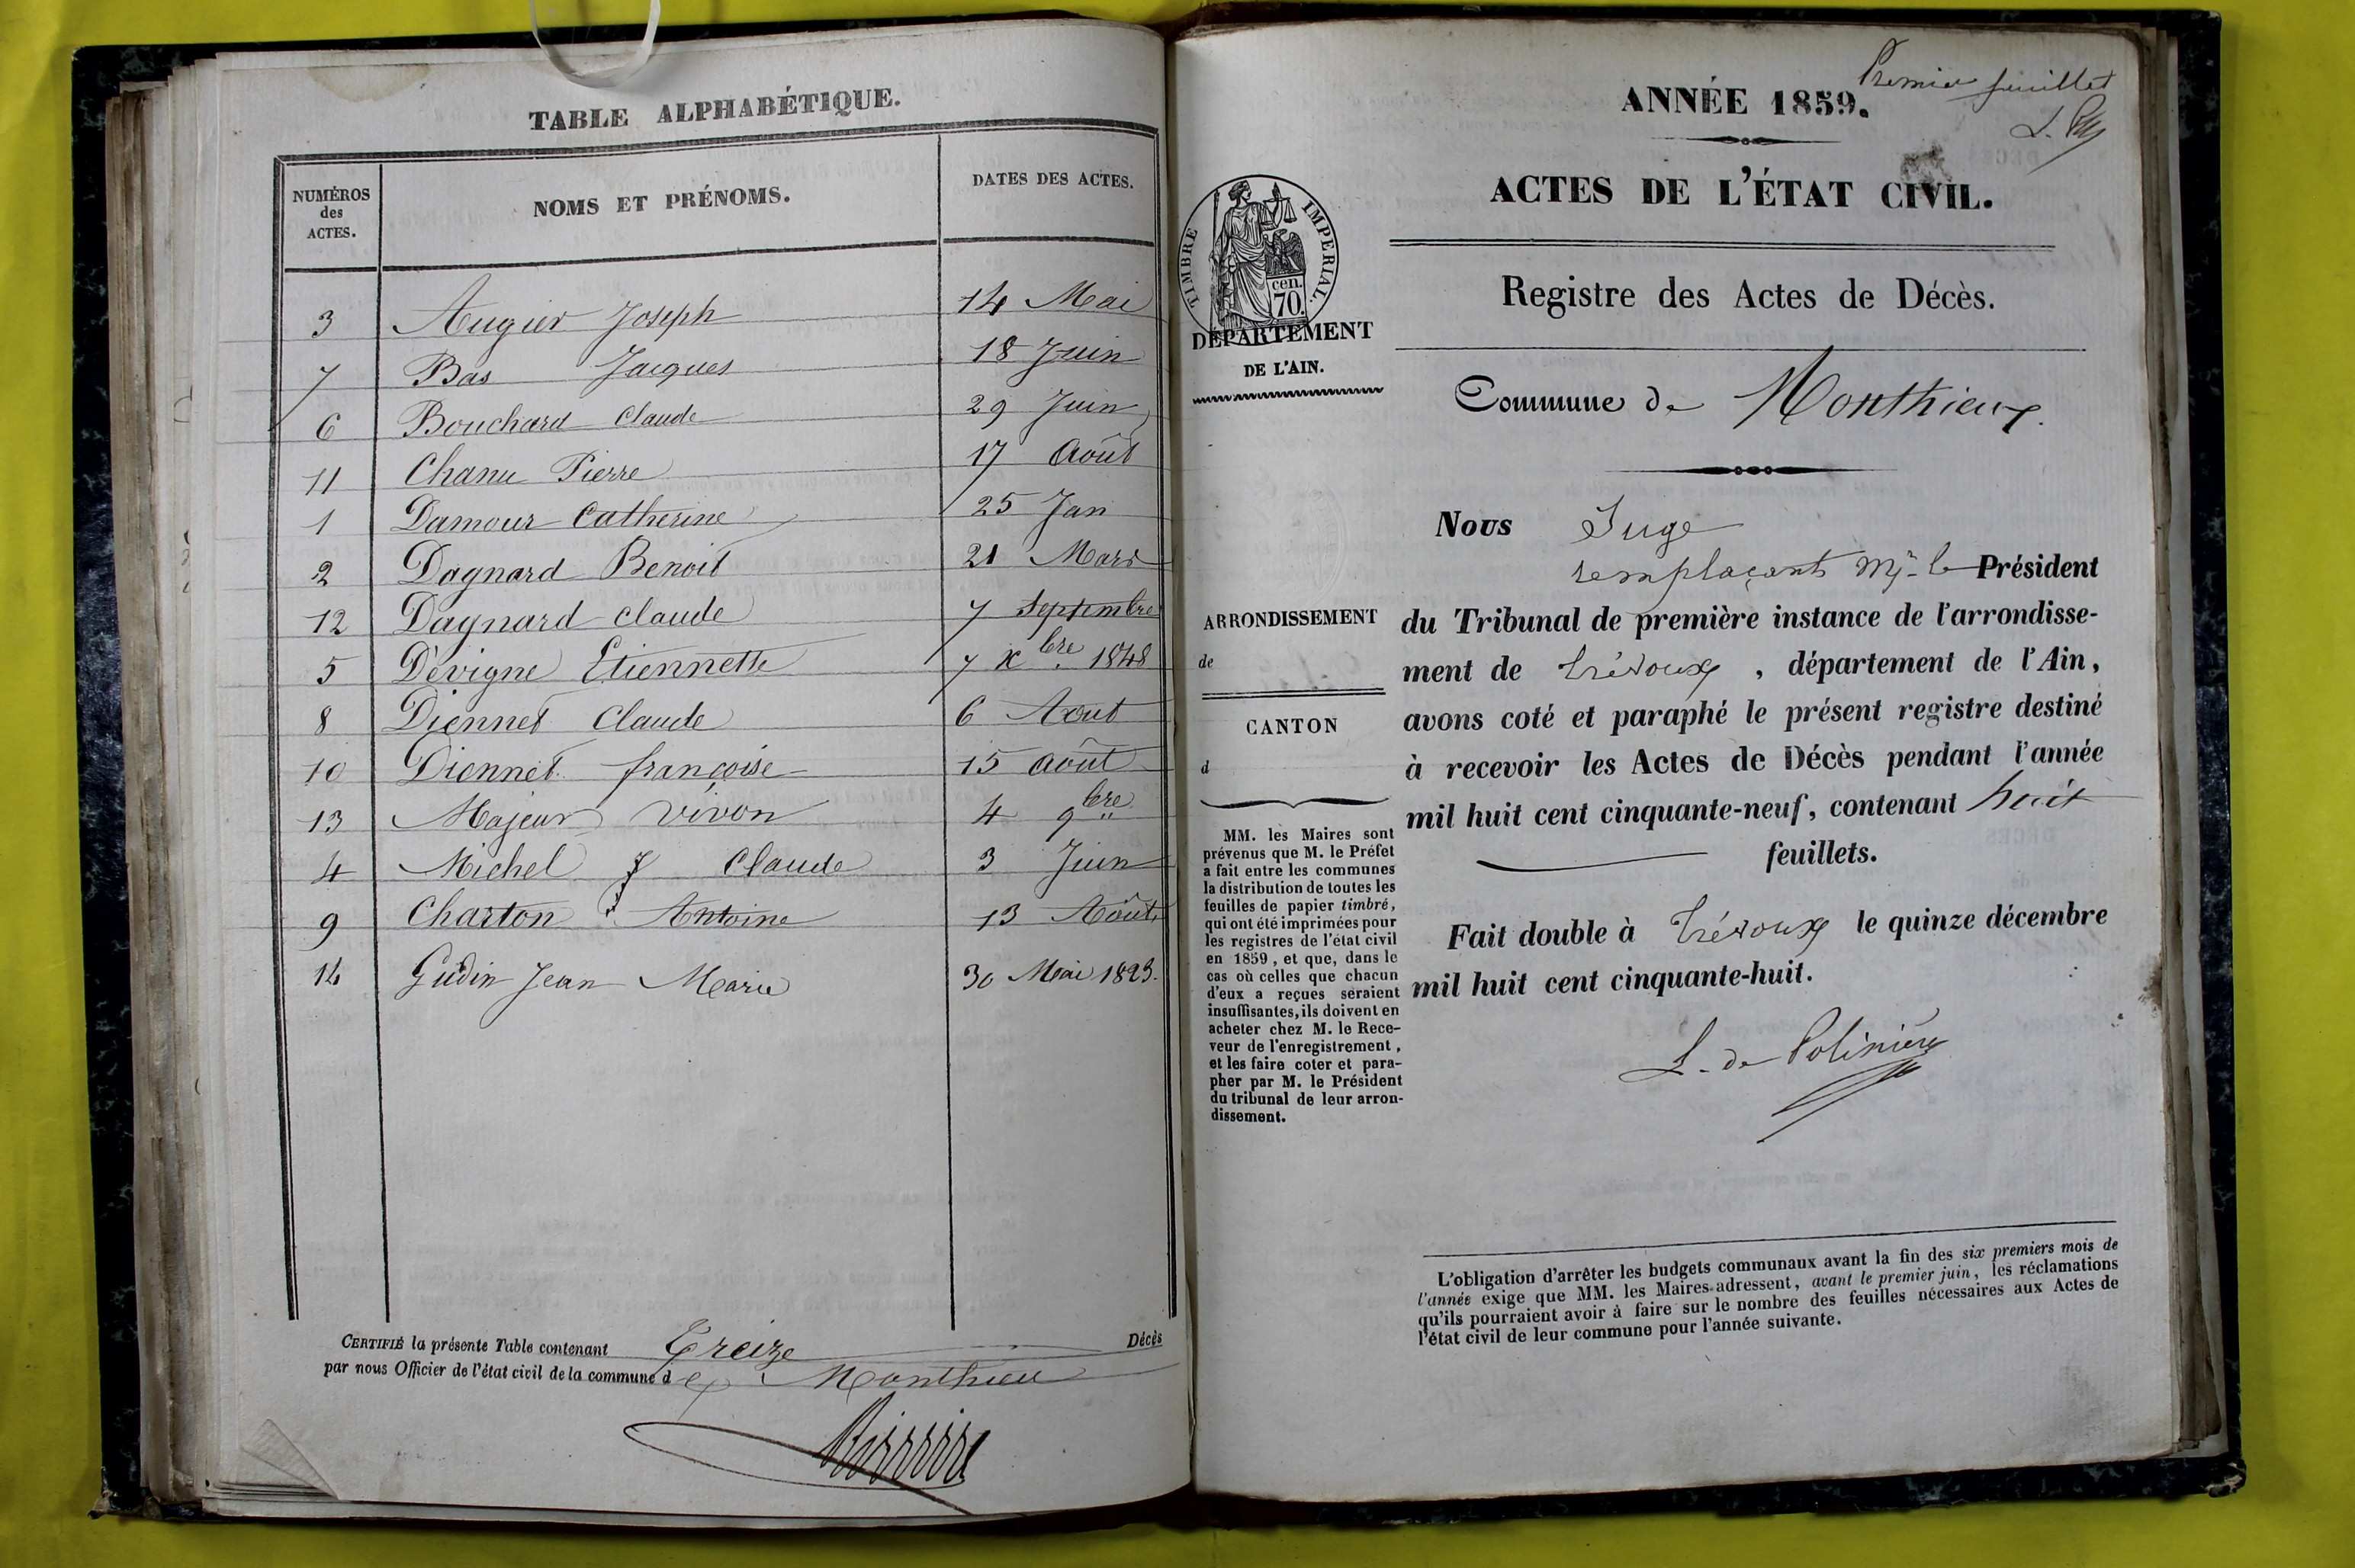 TABLE ALPHABÉTIQUE.
NUMÉROS des ACTES. NOMS ET PRÉNOMS. DATES DES ACTES.
3 Augier Joseph 14 Mai
7 Bas Jacques 18 Juin
6 Bouchard Claude 29 Juin
11 Chanu Pierre 17 Août
1 Damour Catherine 25 Jan
2 Dagnard Benoit 21 Mars
12 Dagnard Claude 7 Septembre
5 Dévigne Etiennette 7 Xbre 1848
8 Diennet Claude 6 Aout
10 Diennet françoise 15 Août
13 Majeur Vivon 4 9bre
4 Michel J Claude 3 Juin
9 Charton Antoine 13 Août
14 Gudin Jean Marie 30 Mai 1823.
CERTIFIÉ la présente Table contenant Treize Décès
par nous Officier de l'état civil de la commune d e Monthieu
Premier feuillet
ANNÉE 1859.
ACTES DE L'ÉTAT CIVIL.
TIMBRE IMPERIAL.
cen.
70.
Registre des Actes de Décès.
DÉPARTEMENT
DE L'AIN.
Commune de Monthieux.
Nous Juge
remplaçant Mr le Président
ARRONDISSEMENT
de
CANTON
d
du Tribunal de première instance de l'arrondisse-
ment de Trévoux, département de l'Ain,
avons coté et paraphé le présent registre destiné
à recevoir les Actes de Décès pendant l'année
mil huit cent cinquante-neuf, contenant huit
feuillets.
Fait double à Trévoux le quinze décembre
mil huit cent cinquante-huit.
L. de Polinière
MM. les Maires sont
prévenus que M. le Préfet
a fait entre les communes
la distribution de toutes les
feuilles de papier timbré,
qui ont été imprimées pour
les registres de l'état civil
en 1859, et que, dans le
cas où celles que chacun
d'eux a reçues seraient
insuffisantes, ils doivent en
acheter chez M. le Rece-
veur de l'enregistrement,
et les faire coter et para-
pher par M. le Président
du tribunal de leur arron-
dissement.
L'obligation d'arrêter les budgets communaux avant la fin des six premiers mois de
l'année exige que MM. les Maires adressent, avant le premier juin, les réclamations
qu'ils pourraient avoir à faire sur le nombre des feuilles nécessaires aux Actes de
l'état civil de leur commune pour l'année suivante.